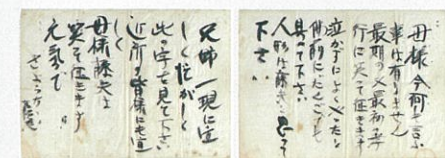 母様今何も言ふ
事は有りません
最期の又最初の孝
行に笑って征きます
泣かずによくやったと
仏前にだんごでも
具って下さい
人形は藤夫と思って
下さい
兄姉一現に宜
しく
此の字を見て下さい
近所の皆様にも宜
しく
母様藤夫は
笑って征きます
元気で
さようなら